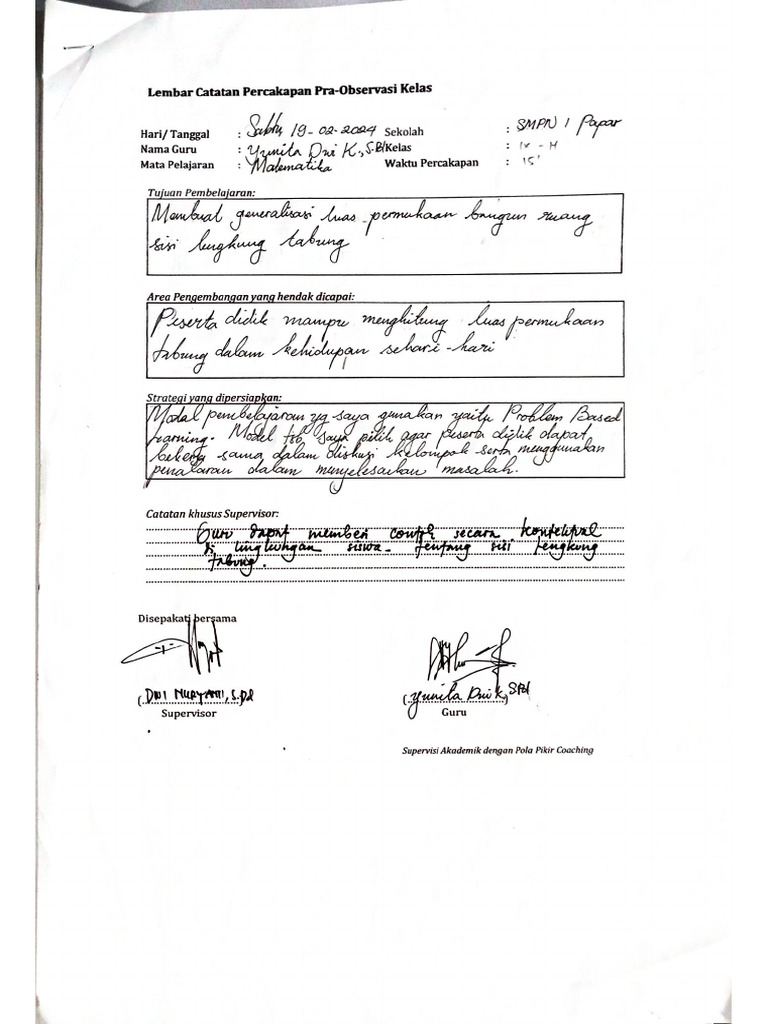 Lembar Catatan Percakapan Pra-Observasi Kelas
Hari/ Tanggal : Sabtu 19-02-2024 Sekolah : SMPN 1 Papar
Nama Guru : Yunita Dwi K, S.Pd Kelas : IX - H
Mata Pelajaran : Matematika Waktu Percakapan : 15'
Tujuan Pembelajaran:
Membuat generalisasi luas permukaan bangun ruang
sisi lengkung tabung
Area Pengembangan yang hendak dicapai:
Peserta didik mampu menghitung luas permukaan
tabung dalam kehidupan sehari-hari
Strategi yang dipersiapkan:
Model pembelajaran yg saya gunakan yaitu Problem Based
Learning. Model tsb saya pilih agar peserta didik dapat
bekerja sama dalam diskusi kelompok serta menggunakan
penalaran dalam menyelesaikan masalah.
Catatan khusus Supervisor:
Guru dapat memberi contoh secara kontekstual
di lingkungan siswa tentang sisi lengkung
tabung.
Disepakati bersama
(DWI NURYANTI, S.Pd
(Yunita Dwi K, S.Pd)
Supervisor Guru
Supervisi Akademik dengan Pola Pikir Coaching